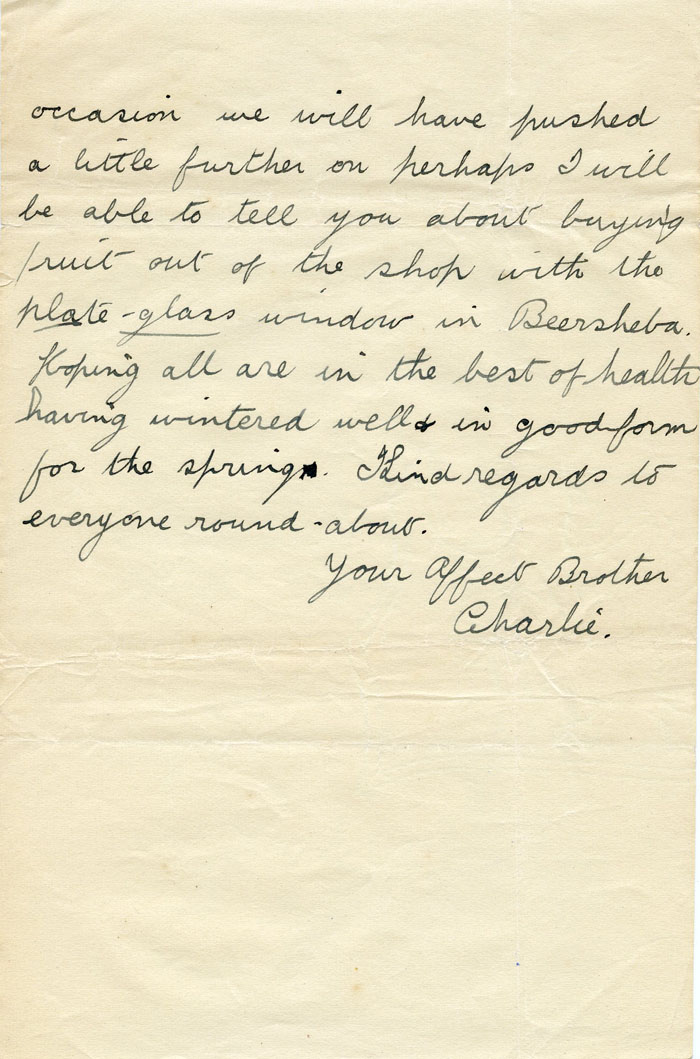 occasion we will have pushed
a little further on perhaps I will
be able to tell you about buying
fruit out of the shop with the
plate-glass window in Beersheba.
Hoping all are in the best of health
having wintered well & in good form
for the spring. Kind regards to
everyone round-about.
Your Affect Brother
Charlie.